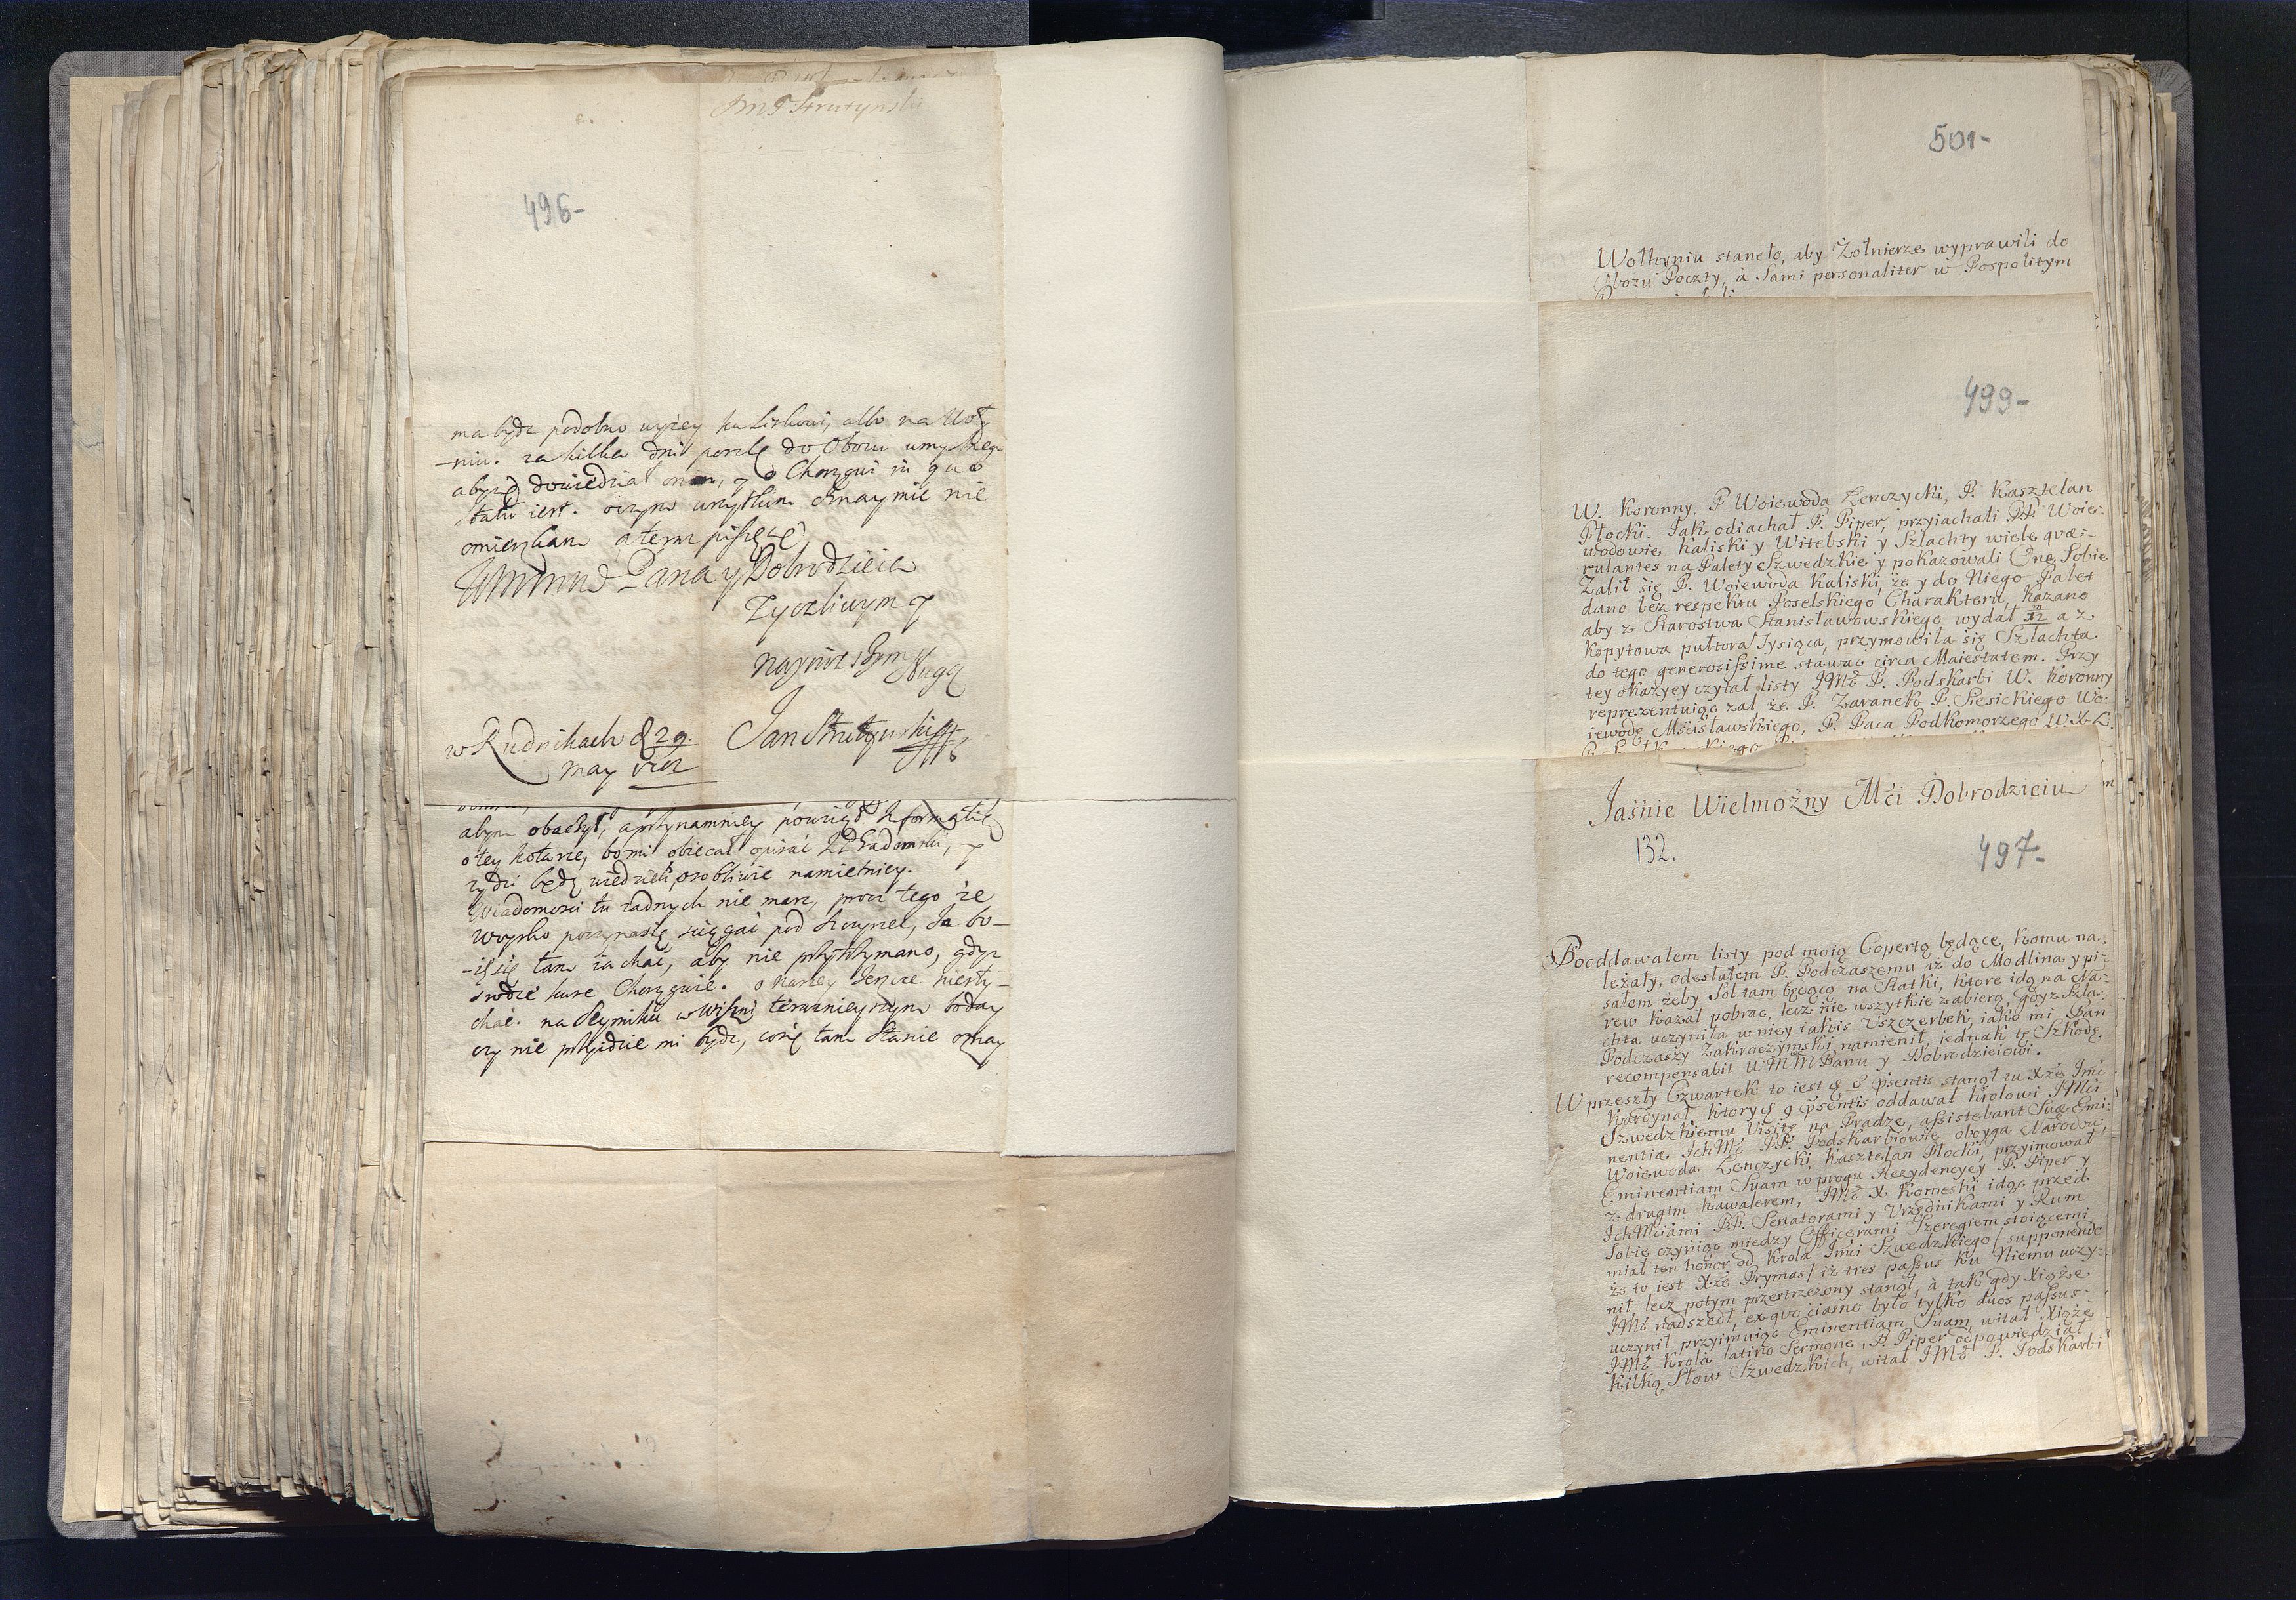 JmP Strutynski
496-
ma bydz podobno wyżey ku Lizkowi, albo na Woły
-niu. za kilka dni poszlę do Obozu umyślnego
abym dowiedział o Chorągwi in quo
statu iest. oczym wszytkim oznaymic nie
omieszkam a teraz piszę się
WmMMP Pana y Dobrodzieia
Zyczliwym y
nayniższym Sługą
w Rudnikach d 29. Jan Strutynski
may 1702
abym obaczył, aprzynamniey powziął informatią
o tey kotarze, bo mi obiecał opisać
będę wiedzieli, osobliwie namietniey.
Wiadomosci tu zadnych nie masz, procz tego ze
woysko poczynasię sciągać pod
-ię się tam iachać, aby nie przytrzymano, gdysz
swoie kure Chorągwie. o naszey ieszcze niesły-
chać. na Seymiku w Wiszni teraznieyszym
czy nie przyidzie mi bydz, cosię tam stanie oznay
501-
Wołhyniu stanęło, aby Żołnierze wyprawili do
Obozu Poczty, à Sami personaliter w Pospolitym
499-
W. Koronny. P Woiewoda Łenczycki, P. Kasztelan
Płocki. Jak odiachał P. Piper, przyiachali PP Woie-
wodowie Kaliski y Witebski y Szlachty wiele quæ-
rulantes na Palety Szwedzkie y pokazowali One, Sobie
Zalił się P. Woiewoda Kaliski, że y do Niego Palet
dano bez respektu Poselskiego Charakteru, kazano
aby z Starostwa Stanisławowskiego wydał a z
Kopytowa pułtora Tysiąca, przymowiła się Szlachta
do tego generosissime stawac circa Maiestatem. Przy
tey okazyey czytał listy JMć P. Podskarbi W. Koronny
reprezentuiąc zal, że P. Zaranek P. Siesickiego Wo-
iewodę Mścisławskiego, P. Paca Podkomorzego W.X.L.
Jaśnie Wielmożny Mći Dobrodzieiu
132.
497-
Pooddawałem listy pod moią Copertą będące, komu na-
leżały, odesłałem P. Podczaszemu aż do Modlina y pi-
sałem żeby Sol tam będącą na Statki, ktore idą na Na-
rew kazał pobrac, lecz nie wszytkie zabierą, gdyz Szla-
chta uczyniła w niey iakis Uszczerbek, iako mi Pan
Podczaszy Zakroczymski namienił, iednak tę Szkodę.
recompensabit WMMPanu y Dobrodzieiowi.
W przeszły Czwartek to iest d 8 pśentis stanął tu Xże Jmć
Kardynał, ktory d 9 pśentis oddawał Krolowi JMći
Szwedzkiemu Visitę na Pradze, assistebant Suæ Emi-
nentiæ IchMć PP. Podskarbiowie oboyga Narodow,
Woiewoda Łenczycki, Kasztelan Płocki, przyimował
Eminentiam Suam w progu Rezydencyey P. Piper y
z drugim Kawalerem, JMć X Komeski idąc przed
IchMciami PP. Senatorami y Vrzędnikami y Rum
Sobie czyniąc miedzy Officerami Szeregiem stoiącemi
miał ten honor od Krola Jmći Szwedzkiego (supponendo
że to iest Xże Prymas) iż tres passus ku Niemu uczy-
nił, lecz potym przestrzeżony stanął, à tak gdy Xiąże
JMć nadszedł, ex quo ciasno było tylko duos passus
uczynił przyimuiąc Eminentiam Suam, witał Xiąże
JMć Krola latino Sermone, P. Piper odpowiedział
kilką Słow Szwedzkich, witał JMć P. Podskarbi